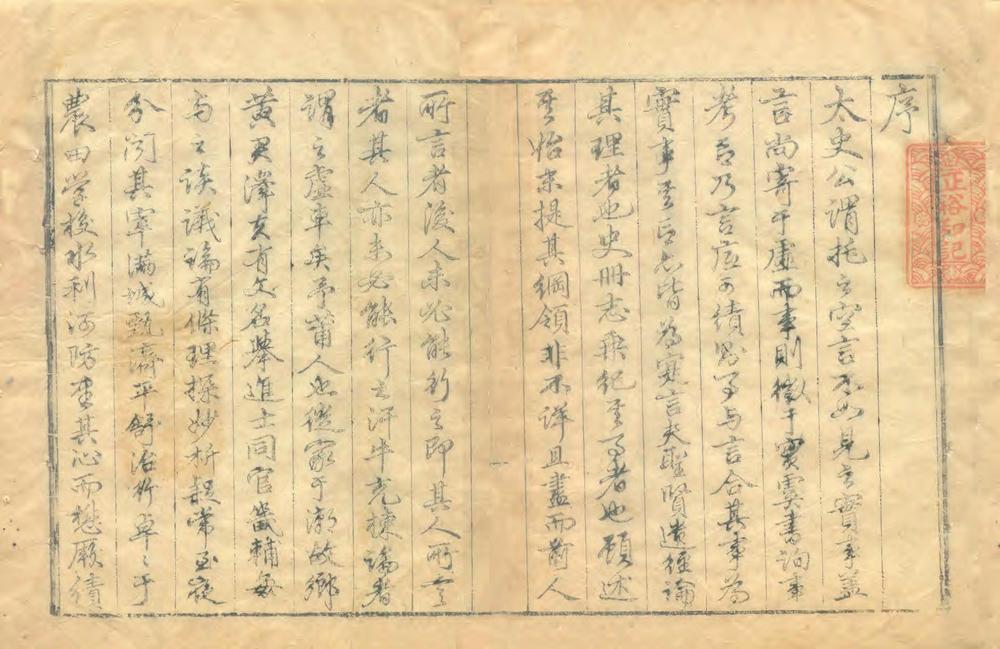 序
太史公謂托之空言不如見之實事蓋
言尚寄于虛而事則徵于實虞書詢事
考言乃言底可績則事与言合其事為
實事其言亦皆為實言夫聖賢遺經論
其理者也史冊志乘紀其事者也顧述
其怡未提其綱領非不詳且盡而前人
所言者後人未必能行之即其人所言
者其人亦未必能行之汗牛充棟論者
謂之虛車矣予莆人也從家于潮故鄉
黃君澤友有文名舉進士同官畿輔每
与之談議論有條理探妙析疑常至夜
分閱其宰滿城甄濟平舒治行卓〻于
農田學校水利河防畫其心而懋厥績
正裕和記